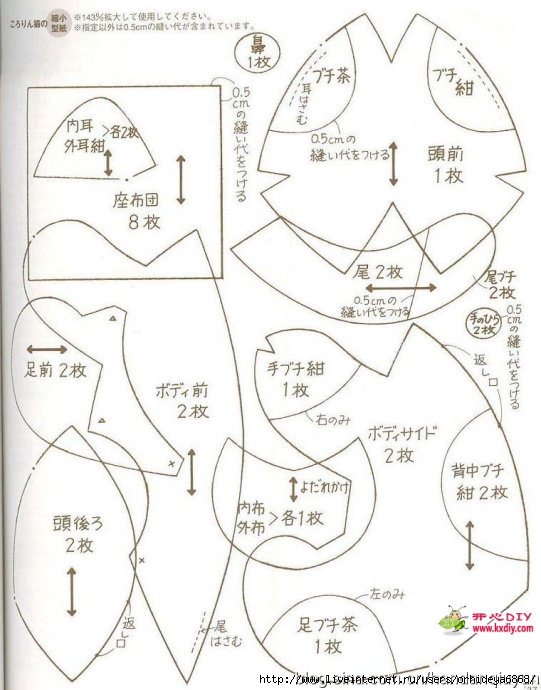 ころりん猫の 縮小型紙
※143%拡大して使用してください。
※指定以外は0.5cmの縫い代が含まれています。
鼻
1枚
0.5cmの縫い代をつける
内耳
外耳紺 >各2枚
座布団
8枚
ブチ茶
耳はさむ
ブチ紺
0.5cmの
縫い代をつける
頭前
1枚
尾2枚
0.5cmの
縫い代をつける
尾ブチ
2枚
手のひら
2枚
0.5cmの縫い代をつける
返し口
足前2枚
ボディ前
2枚
手ブチ紺
1枚
右のみ
ボディサイド
2枚
背中ブチ
紺2枚
よだれかけ
内布
外布 >各1枚
頭後ろ
2枚
返し口
尾
はさむ
左のみ
足ブチ茶
1枚
开心DIY
www.kxdiy.com
http://www.liveinternet.ru/users/orhideya6868/